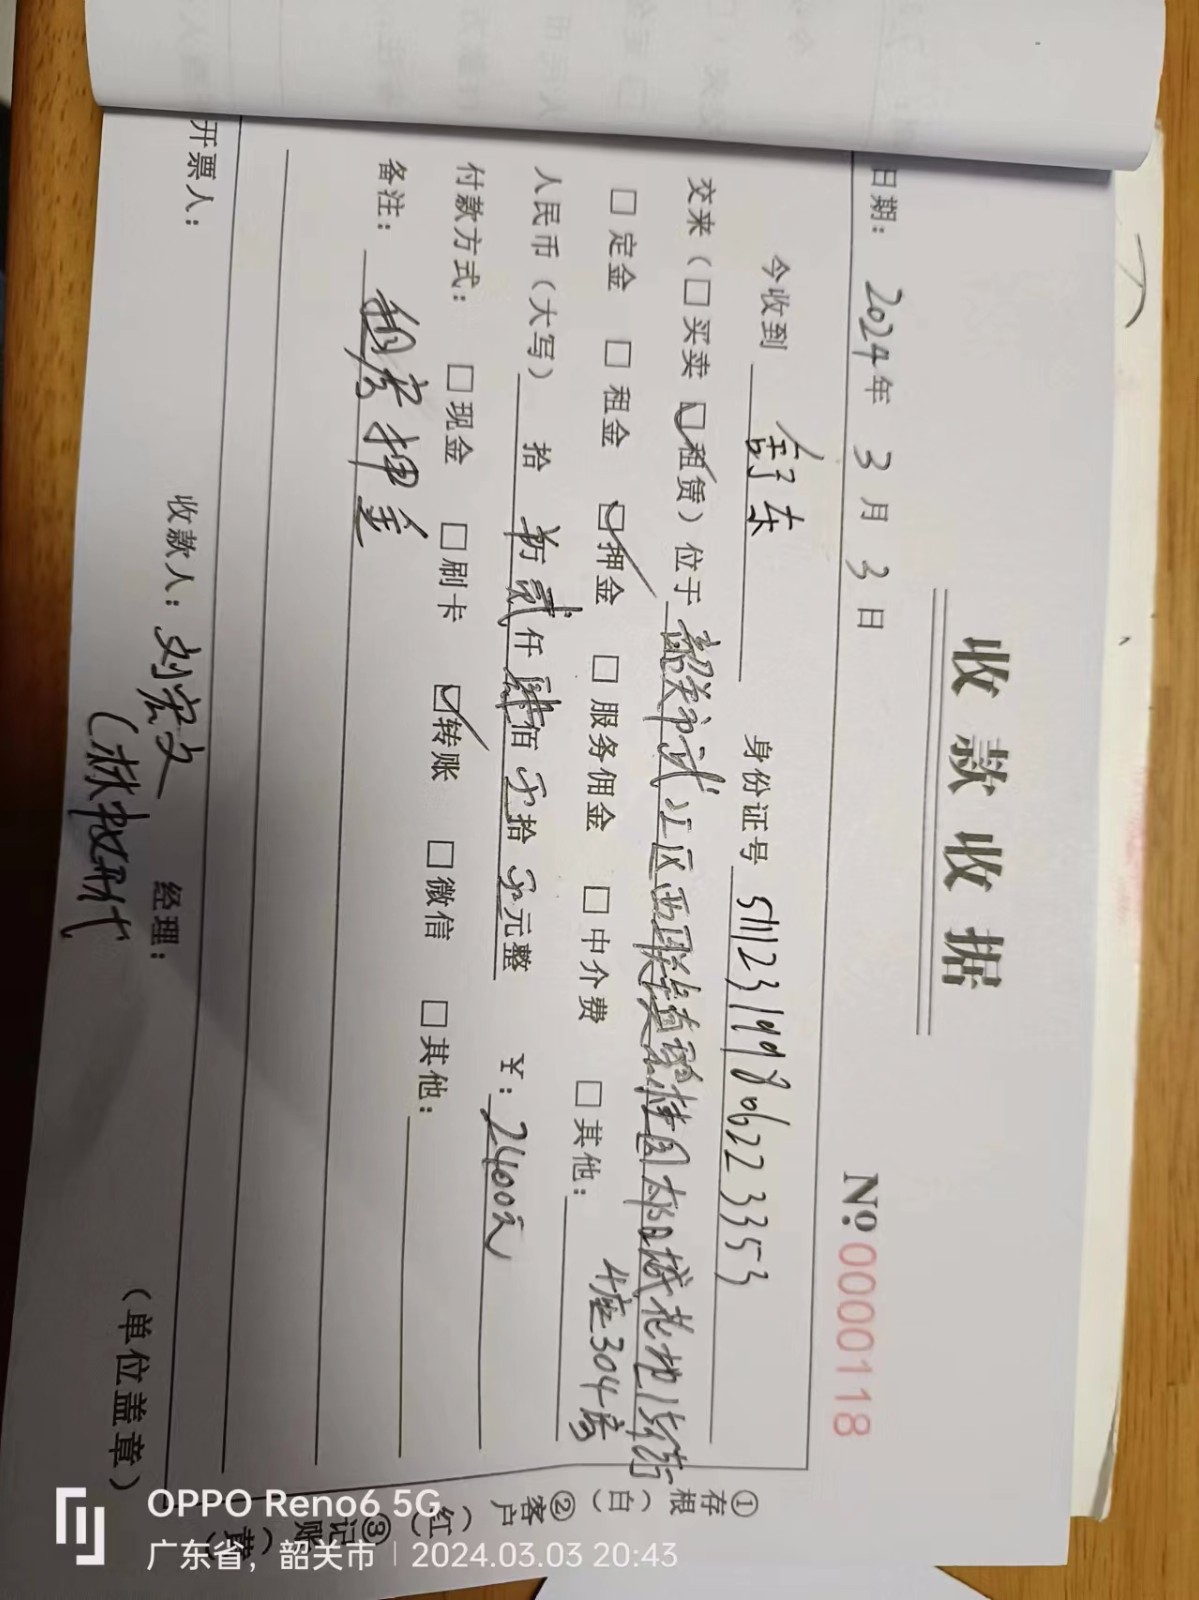 收款收据
№ 0000118
日期： 2024 年 3 月 3 日
今收到 身份证号 511123199806223353
交来（□买卖 ☑租赁）位于 韶关市武江区西联镇 碧桂园太阳城花地1街
4座304房
□定金 □租金 ☑押金 □服务佣金 □中介费 □其他：
人民币（大写） 拾 万 贰 仟 肆 佰 零 拾 零 元整 ￥：2400元
付款方式： □现金 □刷卡 ☑转账 □微信 □其他：
备注： 租房押金
开票人： 收款人： 刘宏文 经理： （单位盖章）
①存根（白） ②客户（红） ③记账（黄）
OPPO Reno6 5G
广东省，韶关市 | 2024.03.03 20:43